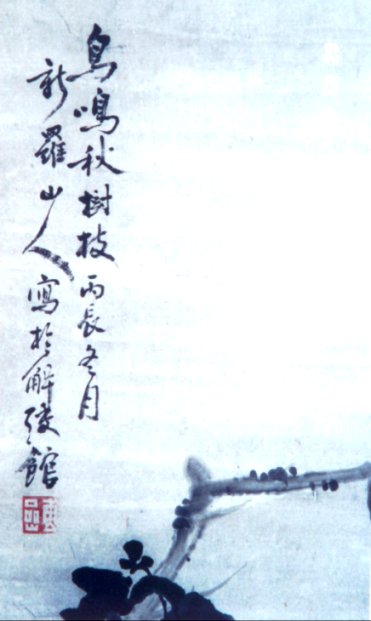 鳥鳴秋樹枝丙辰冬月
新羅山人寫於解弢館